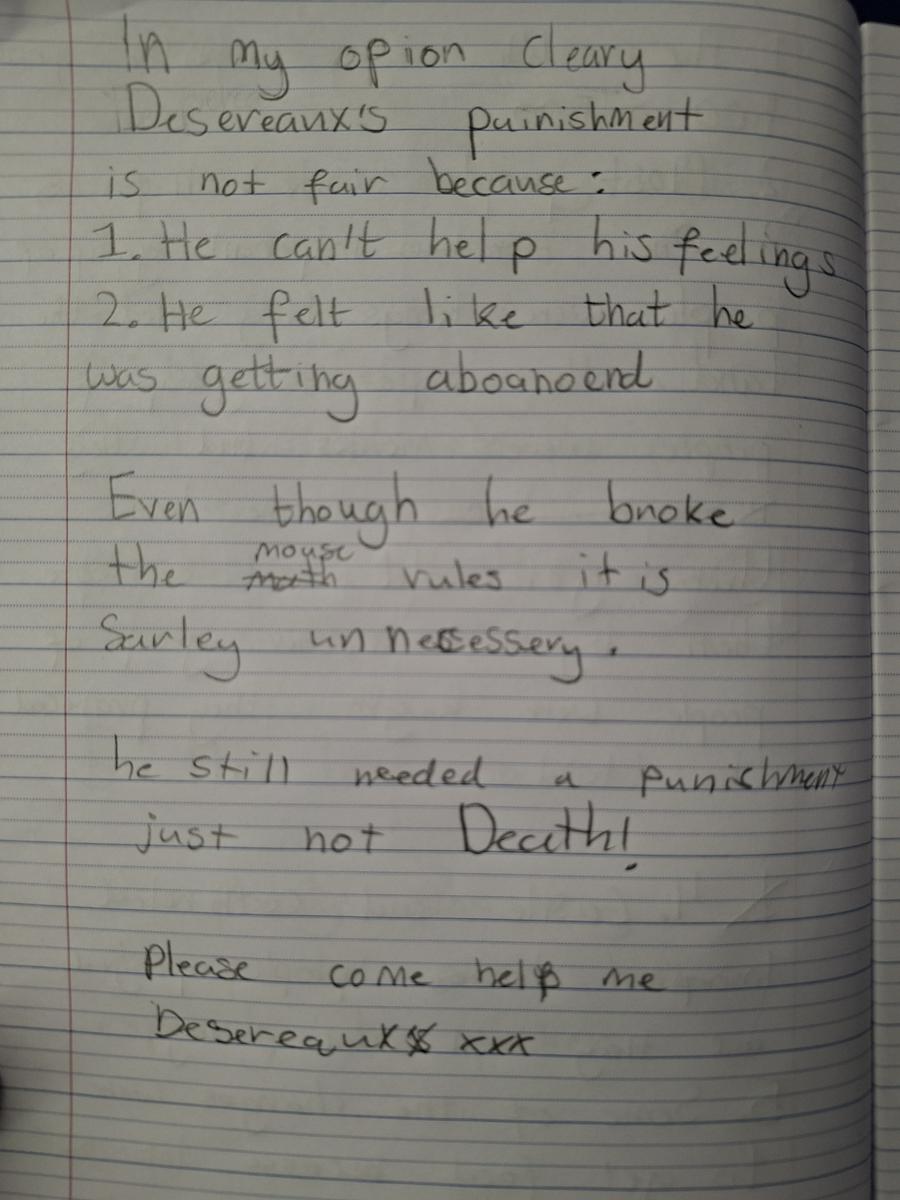 In my opion Cleary
Desereaux's puinishment
is not fair because:
1. He can't help his feelings
2. He felt like that he
was getting aboanoend
Even though he broke
the mouse rules it is
Surley unnecessery.
he still needed a punishment
just not Death!
Please come help me
Desereaux xxx